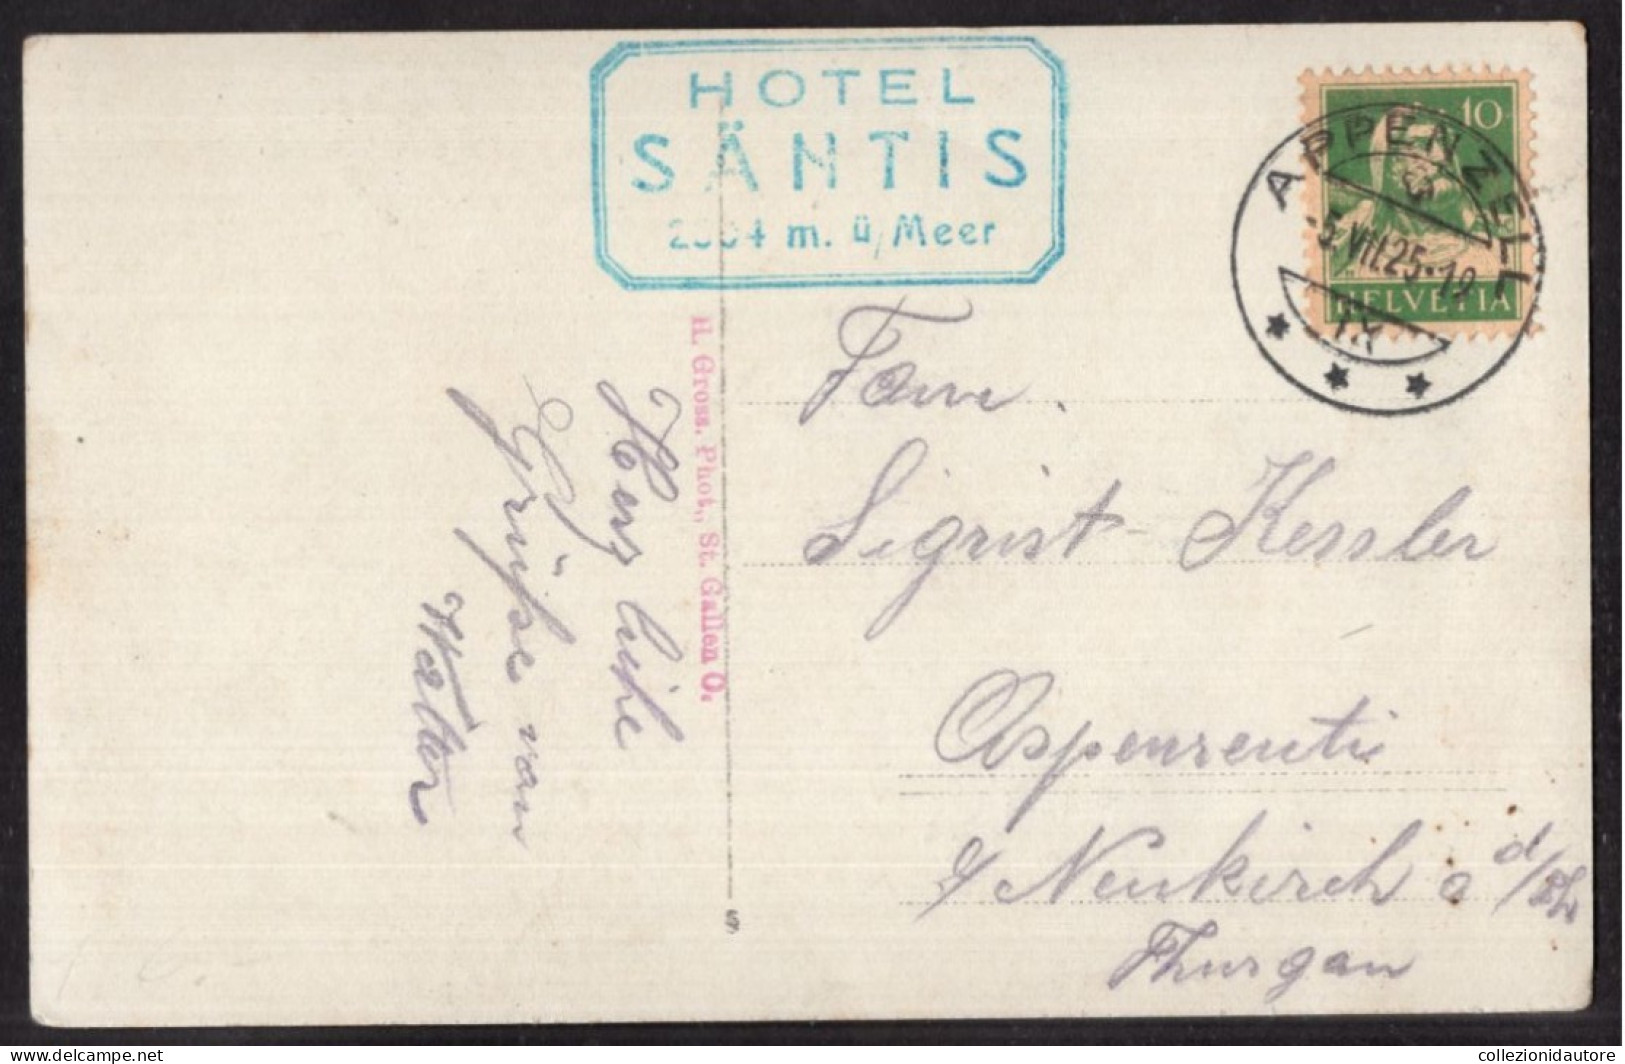 HOTEL
SÄNTIS
2504 m. ü/Meer
10
APPENZELL
-5.VII.25-19
IX
HELVETIA
H. Gross, Phot., St. Gallen O.
Herzliche
Grüsse von
Walter
Fam.
Sigrist-Kessler
Aspenreuti
Neukirch a d/Th
Thurgau
S
collezionidautore
delcampe.net